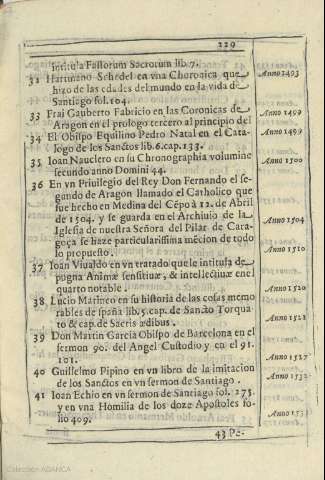 229
intitula Fastorum Sacrorum lib. 7.
32 Hartmano Schedel en vna Choronica que Anno 1493
hizo de las edades del mundo en la vida de
Santiago fol. 104.
33 Frai Gauberto Fabricio en las Coronicas de Anno 1499
Aragon en el prologo tercero al principio del
34 El Obispo Equilino Pedro Natal en el Cata- Anno 1499
logo de los Sanctos lib. 6. cap. 133.
35 Ioan Nauclero en su Chronographia volumine Anno 1500
secundo anno Domini 44.
36 En vn Priuilegio del Rey Don Fernando el se-
gundo de Aragon llamado el Catholico que
fue hecho en Medina del Cāpo à 12. de Abril
de 1504. y se guarda en el Archiuio de la Anno 1504
Iglesia de nuestra Señora del Pilar de Cara-
goça se haze particularissima mēcion de todo
lo propuesto. Anno 1510
37 Ioan Viualdo en vn tratado que le intitula de
pugna Animæ sensitiuæ, & intellectiuæ en el
quarto notable. Anno 1520
38 Lucio Marineo en su historia de las cosas memo
rables de spaña lib. 5. cap. de Sancto Torqua Anno 1522
to & cap. de Sacris ædibus.
39 Don Martin Garcia Obispo de Barcelona en el
sermon 90. del Angel Custodio y en el 91. Anno 1527
101.
40 Guillelmo Pipino en vn libro de la imitacion Anno 1532
de los Sanctos en vn sermon de Santiago.
41 Ioan Echio en vn sermon de Santiago fol. 275
y en vna Homilia de los doze Apostoles fo Anno 153
lio 409.
43 Pe-
Colección ADANCA